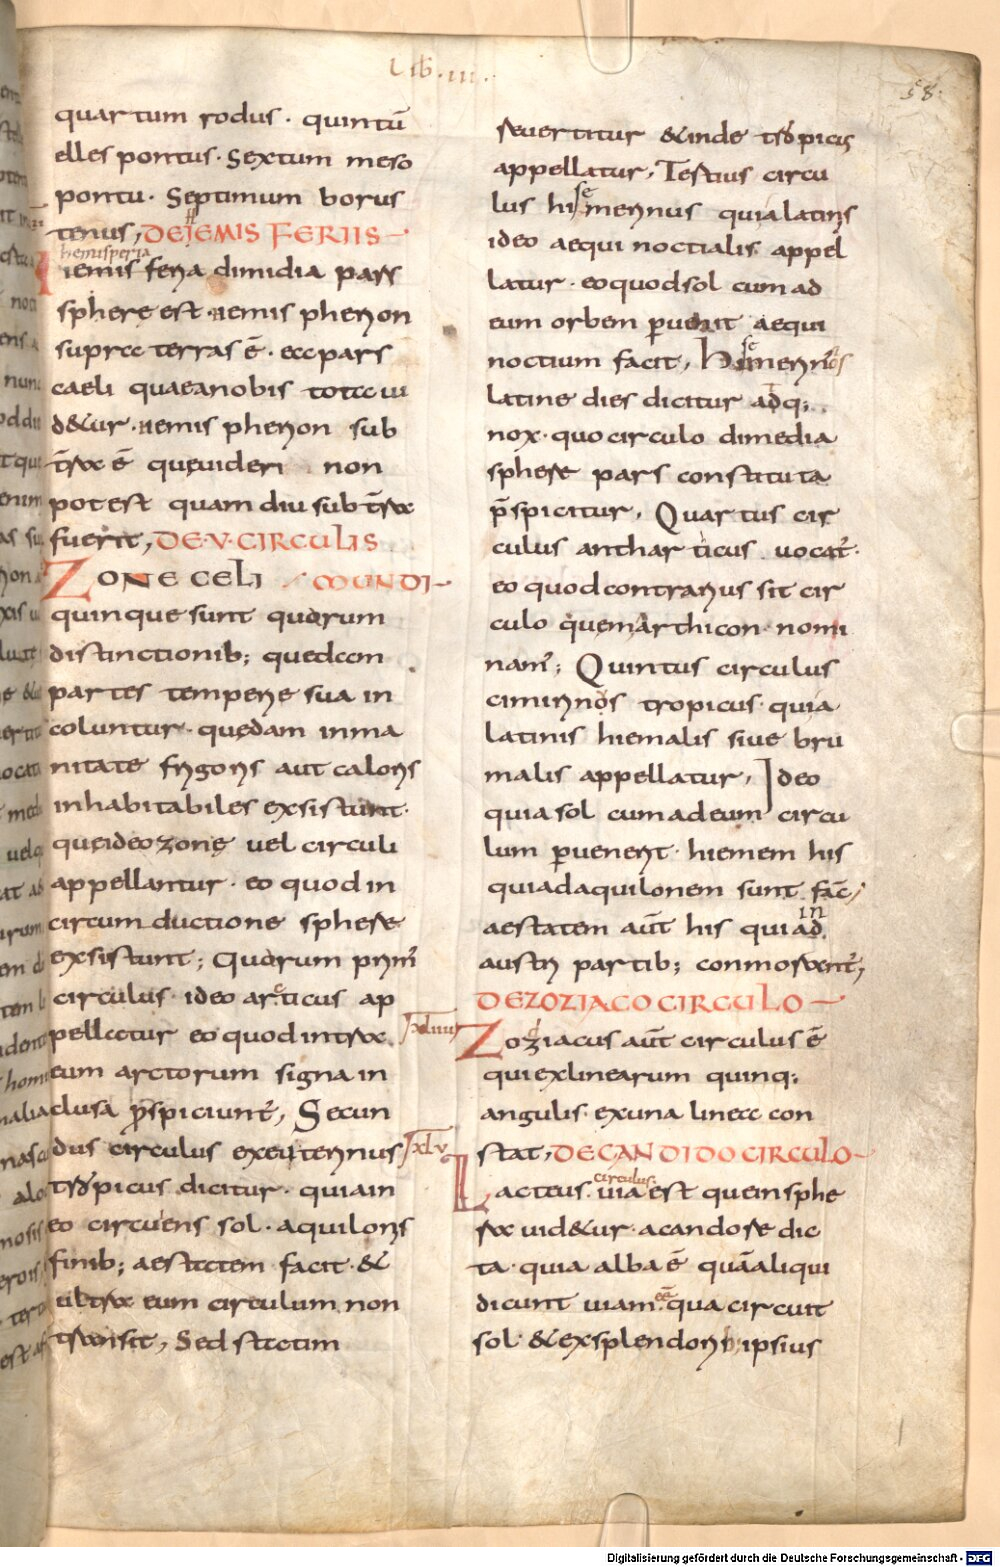 Lib. III.
58.
quartum rodus. quintū
elles pontus. Sextum meso
pontu. Septimum borus
tenus, DE JEMIS FERIIS
hemisperia
iemis feria dimidia pars
spherę est. iemis pherion
supra terras ē. ea pars
caeli quae a nobis tota ui
d&ur. iemis pherion sub
t̄ra ē quę uideri non
potest quam diu sub t̄ra
fuerit, DE V CIRCULIS
ZONE CELI MUNDI
quinque sunt quorum
distinctionib; quedam
partes temperie sua in
coluntur. quędam inma
nitate frigoris aut caloris
inhabitabiles exsistunt.
quę ideo zonę uel circuli
appellantur. eo quod in
circum ductione sphere
exsistunt; Quorum prim
circulus ideo arcticus ap
pellatur eo quod intra
eum arctorum signa in
clusa p̄spiciunt̄, Secun
dus circulus ex
tropicus dicitur. quia in
eo circuens sol. aquilonis
finib; aestatem facit. &
ultra eum circulum non
transit, Sed statim
reuertitur & inde tropicus
appellatur, Tertius circu
se
lus hi merinus quia latinis
ideo aequi noctialis appel
latur. eo quod sol cum ad
eum orbem puenit aequi
noctium facit,
se
latine dies dicitur adq;
nox. quo circulo dimedia
sphere pars constituta
p̄spicitur, Quartus cir
culus anthar ticus uocat̄.
eo quod contrarius sit cir
culo quem arthicon nomi
nam̄; Quintus circulus
cimirinos tropicus. quia
latinis hiemalis siue bru
malis appellatur, Ideo
quia sol cum ad eum circu
lum puenerit. hiemem his
qui ad aquilonem sunt fac̄
in
aestatem aut̄ his qui ad
austri partib; conmorent̄,
DE ZOZIACO CIRCULO
XLIIII
d
Zoziacus aut̄ circulus ē
qui ex linearum quinq;
angulis. ex una linea con
stat, DE CANDIDO CIRCULO
XLV
circulus
Lacteus. uia est que in sphe
ra uid&ur. a candore dic
ta. quia alba ē quā aliqui
dicunt uiam eē qua circuit
sol. & ex splendoris ipsius
Digitalisierung gefördert durch die Deutsche Forschungsgemeinschaft - DFG